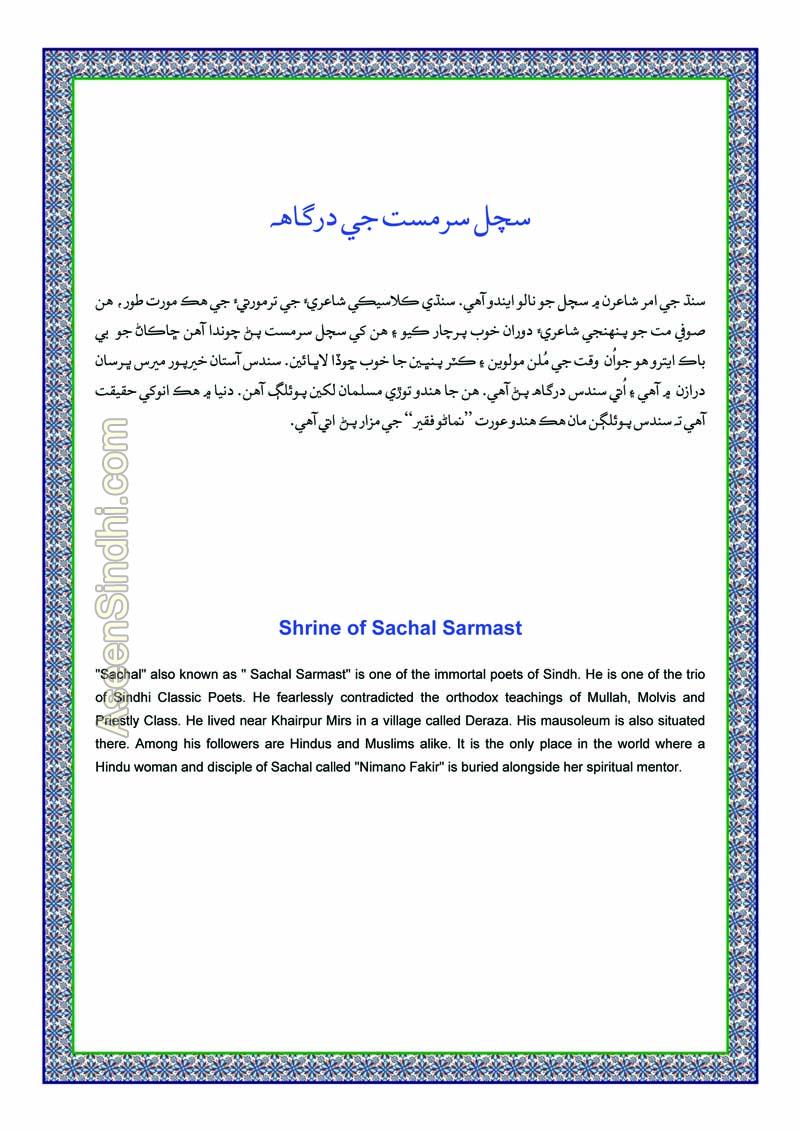 سچل سرمست جي درگاهہ
سنڌ جي امر شاعرن ۾ سچل جو نالو ايندو آهي. سنڌي ڪلاسيڪي شاعريءَ جي ترمورتيءَ جي هڪ مورت طور، هن
صوفي مت جو پنهنجي شاعريءَ دوران خوب پرچار ڪيو ۽ هن کي سچل سرمست پڻ چوندا آهن ڇاڪاڻ جو بي
باڪ ايترو هو جو اُن وقت جي مُلن مولوين ۽ ڪٽر پنٿين جا خوب ڇوڏا لاهائين. سندس آستان خيرپور ميرس ڀرسان
درازن ۾ آهي ۽ اُتي سندس درگاهہ پڻ آهي. هن جا هندو توڙي مسلمان لکين پوئلڳ آهن. دنيا ۾ هڪ انوکي حقيقت
آهي تہ سندس پوئلڳن مان هڪ هندو عورت ”نماڻو فقير“ جي مزار پڻ اتي آهي.
Shrine of Sachal Sarmast
"Sachal" also known as " Sachal Sarmast" is one of the immortal poets of Sindh. He is one of the trio
of Sindhi Classic Poets. He fearlessly contradicted the orthodox teachings of Mullah, Molvis and
Priestly Class. He lived near Khairpur Mirs in a village called Deraza. His mausoleum is also situated
there. Among his followers are Hindus and Muslims alike. It is the only place in the world where a
Hindu woman and disciple of Sachal called "Nimano Fakir" is buried alongside her spiritual mentor.
AseenSindhi.com